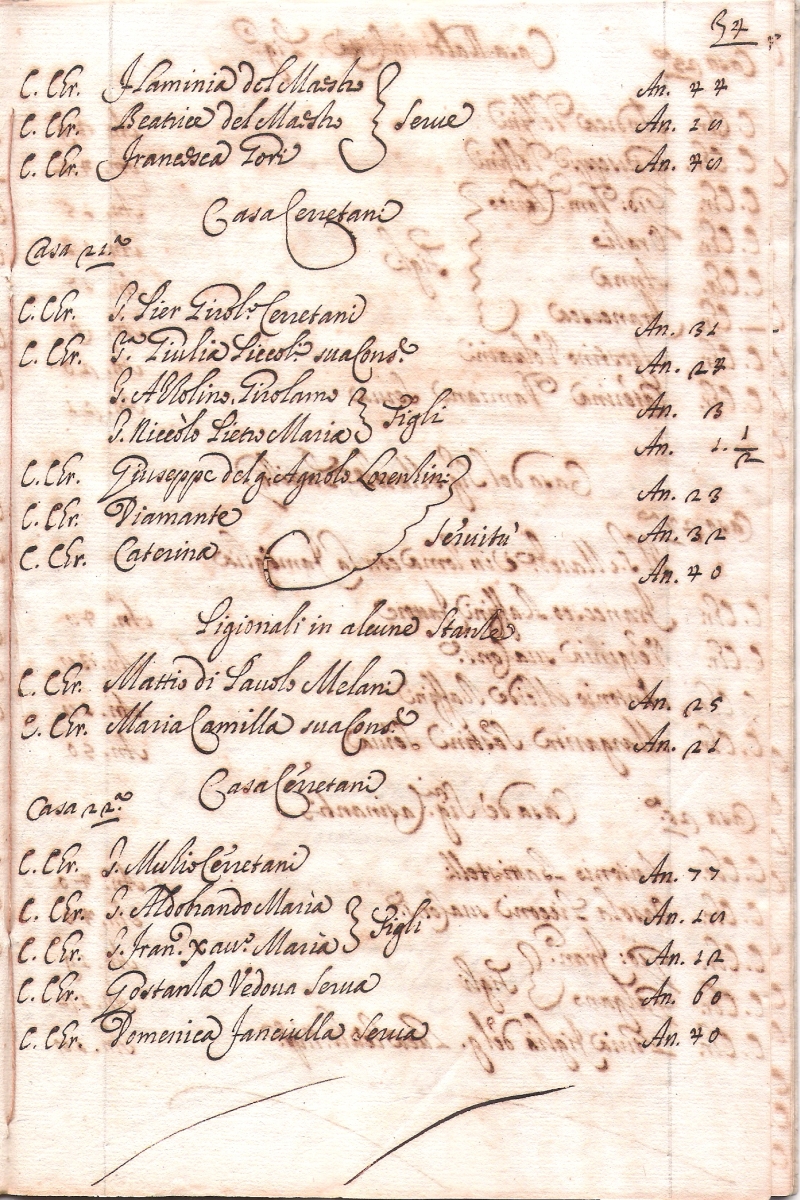 34
C. Chr. Flaminia del Maestro An. 44
C. Chr. Beatrice del Maestro Serve An. 18
C. Chr. Francesca Gori An. 48
Casa Cerretani
Casa 21.ª
C. Chr. S. Pier Girol.º Cerretani An. 31
C. Chr. S.ª Giulia Piccol.ⁱ sua Cons.ᵉ An. 24
S. Azzolino Girolamo An. 3
S. Niccolò Pietro Maria Figli An. 1. 1/2
C. Chr. Giuseppe del q. Agnolo Lorenzini An. 23
C. Chr. Diamante Servitù An. 32
C. Chr. Caterina An. 40
Pigionali in alcune Stanze
C. Chr. Mattio di Pavolo Melani An. 25
C. Chr. Maria Camilla sua Cons.ᵉ An. 21
Casa Cerretani
Casa 22.ª
C. Chr. S. Muzio Cerretani An. 77
C. Chr. S. Aldobrando Maria An. 18
C. Chr. S. Fran.º Xav.º Maria Figli An. 12
C. Chr. Gostanza Vedova Serva An. 60
C. Chr. Domenica Fanciulla Serva An. 40